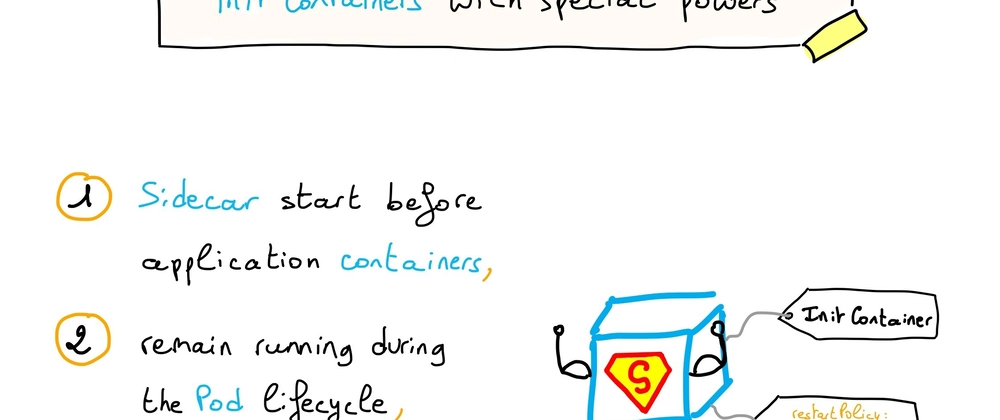 Init Containers with special powers
1 Sidecar start before
application containers,
2 remain running during
the Pod lifecycle,
Init Container
S
restartPolicy: